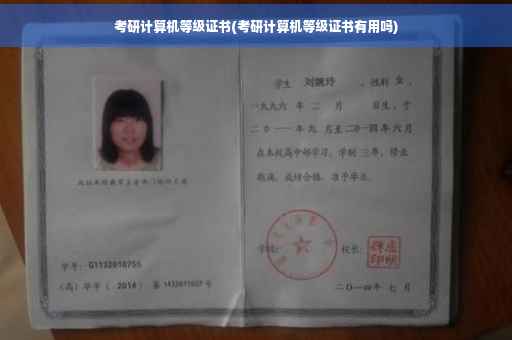 考研计算机等级证书(考研计算机等级证书有用吗)
学生 刘婉玲 ，性别 女 ，
一九九六 年 二 月 日生，于
二〇一一年九 月至二〇一四年 六月
在本校高中部学习，学制 三年，修业
期满，成绩合格，准予毕业。
学号: G1132010755
(高) 毕字 ( 2014 ) 第 号
学校:
校长:
二〇一四年 七 月